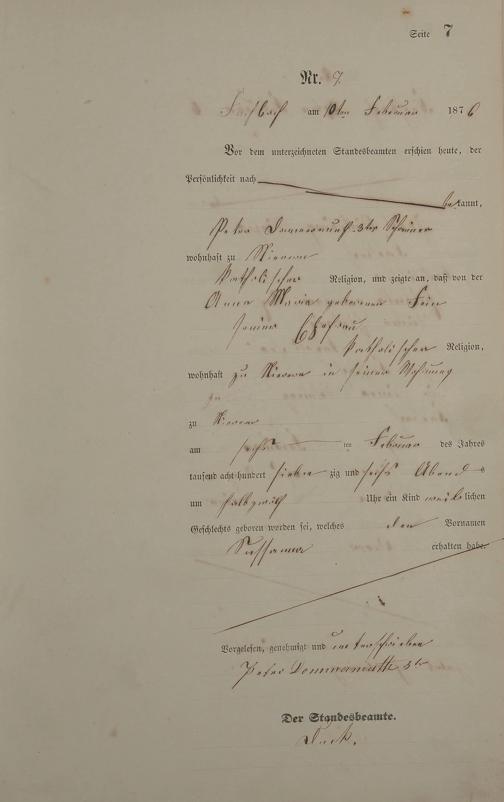 Seite 7
Nr. 7.
am 10ten Februar 1876
Vor dem unterzeichneten Standesbeamten erschien heute, der
Persönlichkeit nach
bekannt,
Peter 3ter
wohnhaft zu
katholischer Religion, und zeigte an, daß von der
Anna Maria geborenen
seiner Ehefrau
katholischer Religion,
wohnhaft zu in seiner Wohnung
zu
am sechs ten Februar des Jahres
tausend acht hundert sieben zig und sechs Abends
um halb zwölf Uhr ein Kind weiblichen
Geschlechts geboren worden sei, welches den Vornamen
Sussanna erhalten habe.
Vorgelesen, genehmigt und unterschrieben
Peter 3ter
Der Standesbeamte.